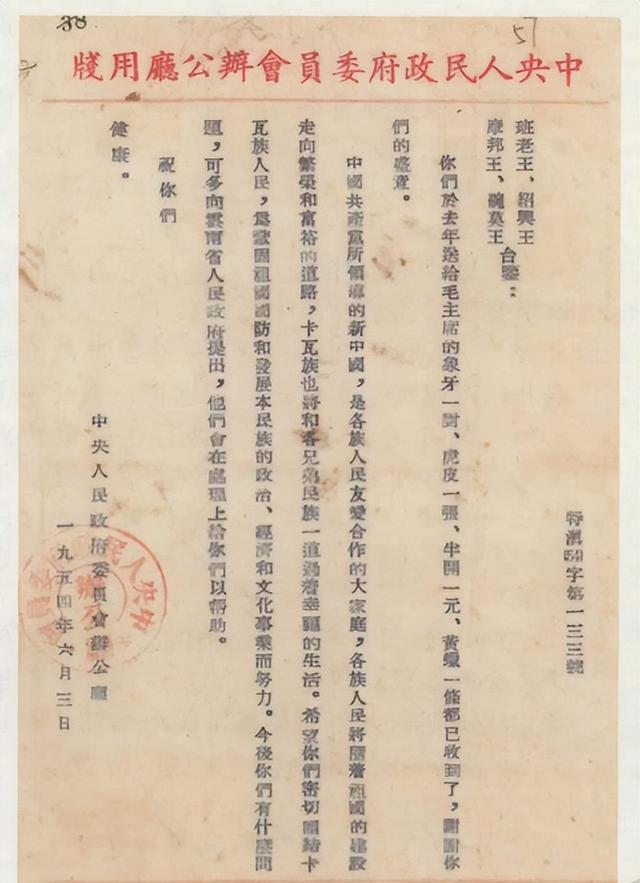 中央人民政府委員會辦公廳用牋
38
57
字第一三三號
班老王、紹興王
摩邦王、碗莫王
台鑒：
你們於去年送給毛主席的象牙一對、虎皮一張、半開一元、黃蠟一條都已收到了，謝謝你
們的盛意。
中國共產黨所領導的新中國，是各族人民友愛合作的大家庭，各族人民將隨着祖國的建設
走向繁榮和富裕的道路，卡瓦族也將和各兄弟民族一道過着幸福的生活。希望你們密切團結卡
瓦族人民，爲鞏固祖國國防和發展本民族的政治、經濟和文化事業而努力。今後你們有什麼問
題，可多向雲南省人民政府提出，他們會在處理上給你們以幫助。
祝你們
健康。
中央人民政府委員會辦公廳
一九五四年六月三日